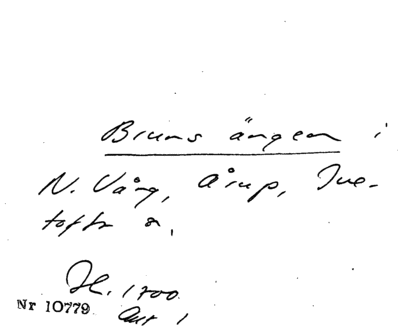 Bruns ängen i
N. Vång, Årup, Jue-
tofta a.
H. 1700
Nr 10779 Akt 1